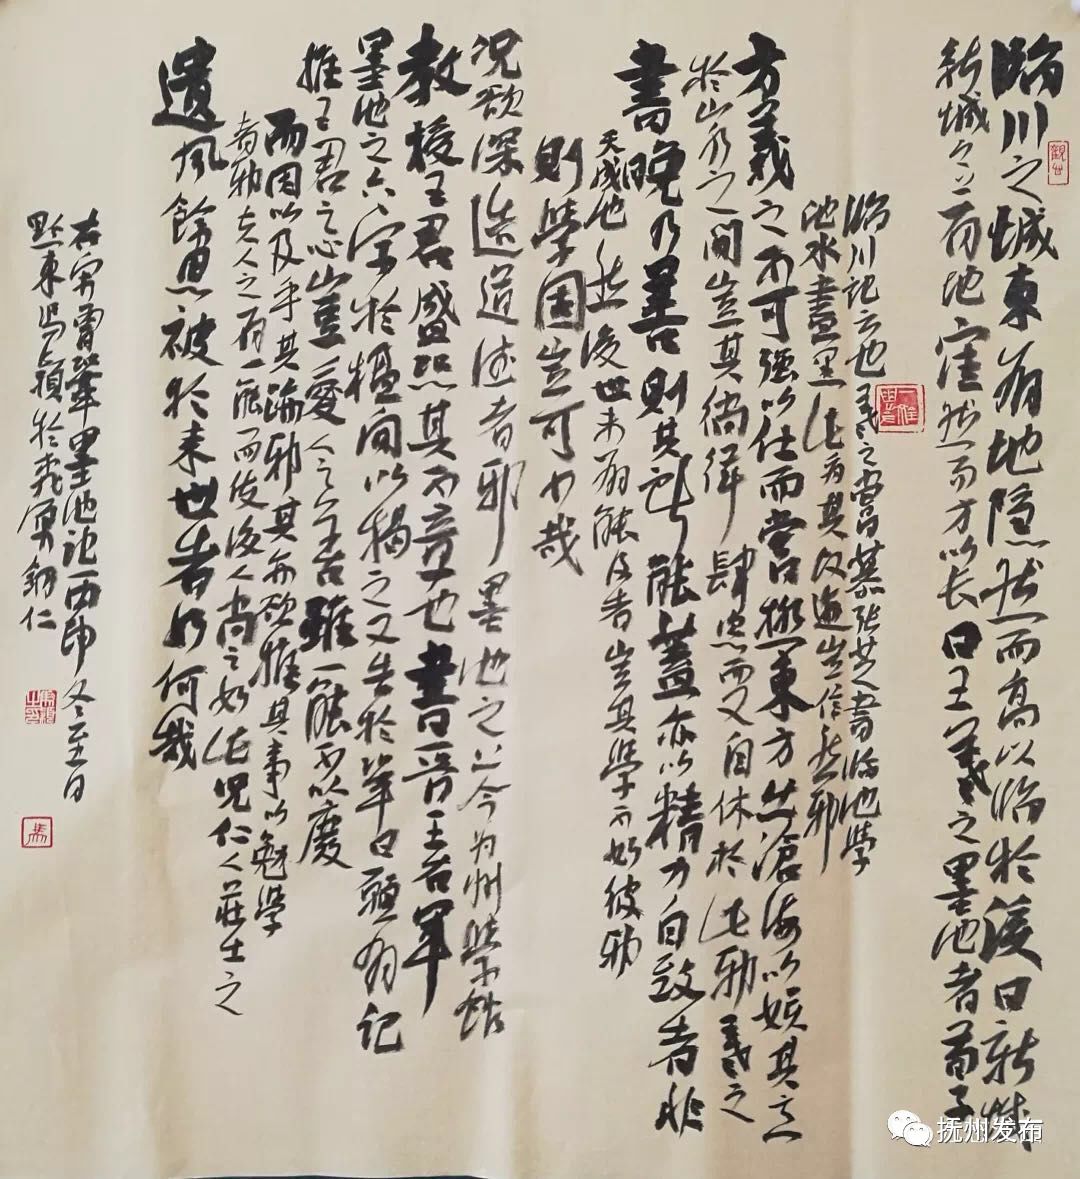 臨川之城東有地隱然而高以臨於溪曰新城
新城之上有地窪然而方以長曰王羲之墨池者荀子
臨川記云也羲之嘗慕張芝書臨池學
池水盡黑此為其故迹豈信然邪
方羲之之不可強以仕而嘗極東方出滄海以娛其意
於山水之間豈其徜徉肆恣而又自休於此邪羲之
書晚乃善則其所能蓋亦以精力自致者非
天成也然後世未有能及者豈其學不如彼邪
則學固豈可少哉
況欲深造道德者邪墨池之上今為州學舘
教授王君盛恐其不章也書晉王右軍
墨池之六字於楹間以揭之又告於鞏曰願有記
推王君之心豈愛人之善雖一能不以廢
而因以及乎其迹邪其亦欲推其事以勉學
者邪夫人之有一能而使後人尚之如此況仁人莊士之
遺風餘思被於來世者如何哉
右宋曾鞏墨池記丙申冬至日
黔東馬於仁
馬
抚州发布